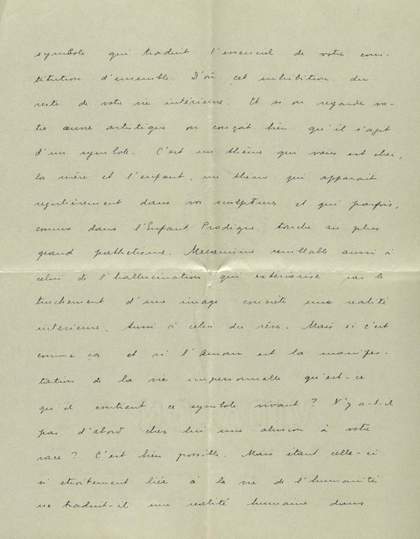 symbole qui traduit l'essentiel de votre cons-
titution d'ensemble. D'où cet inhibition du
reste de votre vie intérieure. Et si on regarde vo-
tre œuvre artistique on conçoit bien qu'il s'agit
d'un symbole. C'est un thème que vous est cher,
la mère et l'enfant, un thème qui apparait
regulièrement dans vos sculptures et qui parfois,
comme dans l'Enfant Prodigue, touche au plus
grand pathétisme. Mecanisme semblable aussi à
celui de l'hallucination qui exteriorise par le
truchement d'une image concrète une realité
intérieure. Aussi à celui du rêve. Mais si c'est
comme ca et si l'Amour est la manifes-
tation de la vie impersonnelle qu'est-ce
qu'il contient ce symbole vivant? N'y a-t-il
pas d'abord chez lui une allusion à votre
race? C'est bien possible. Mais etant celle-ci
si etroitement liée à la vie de l'humanité
ne traduit-il une realité humaine dans